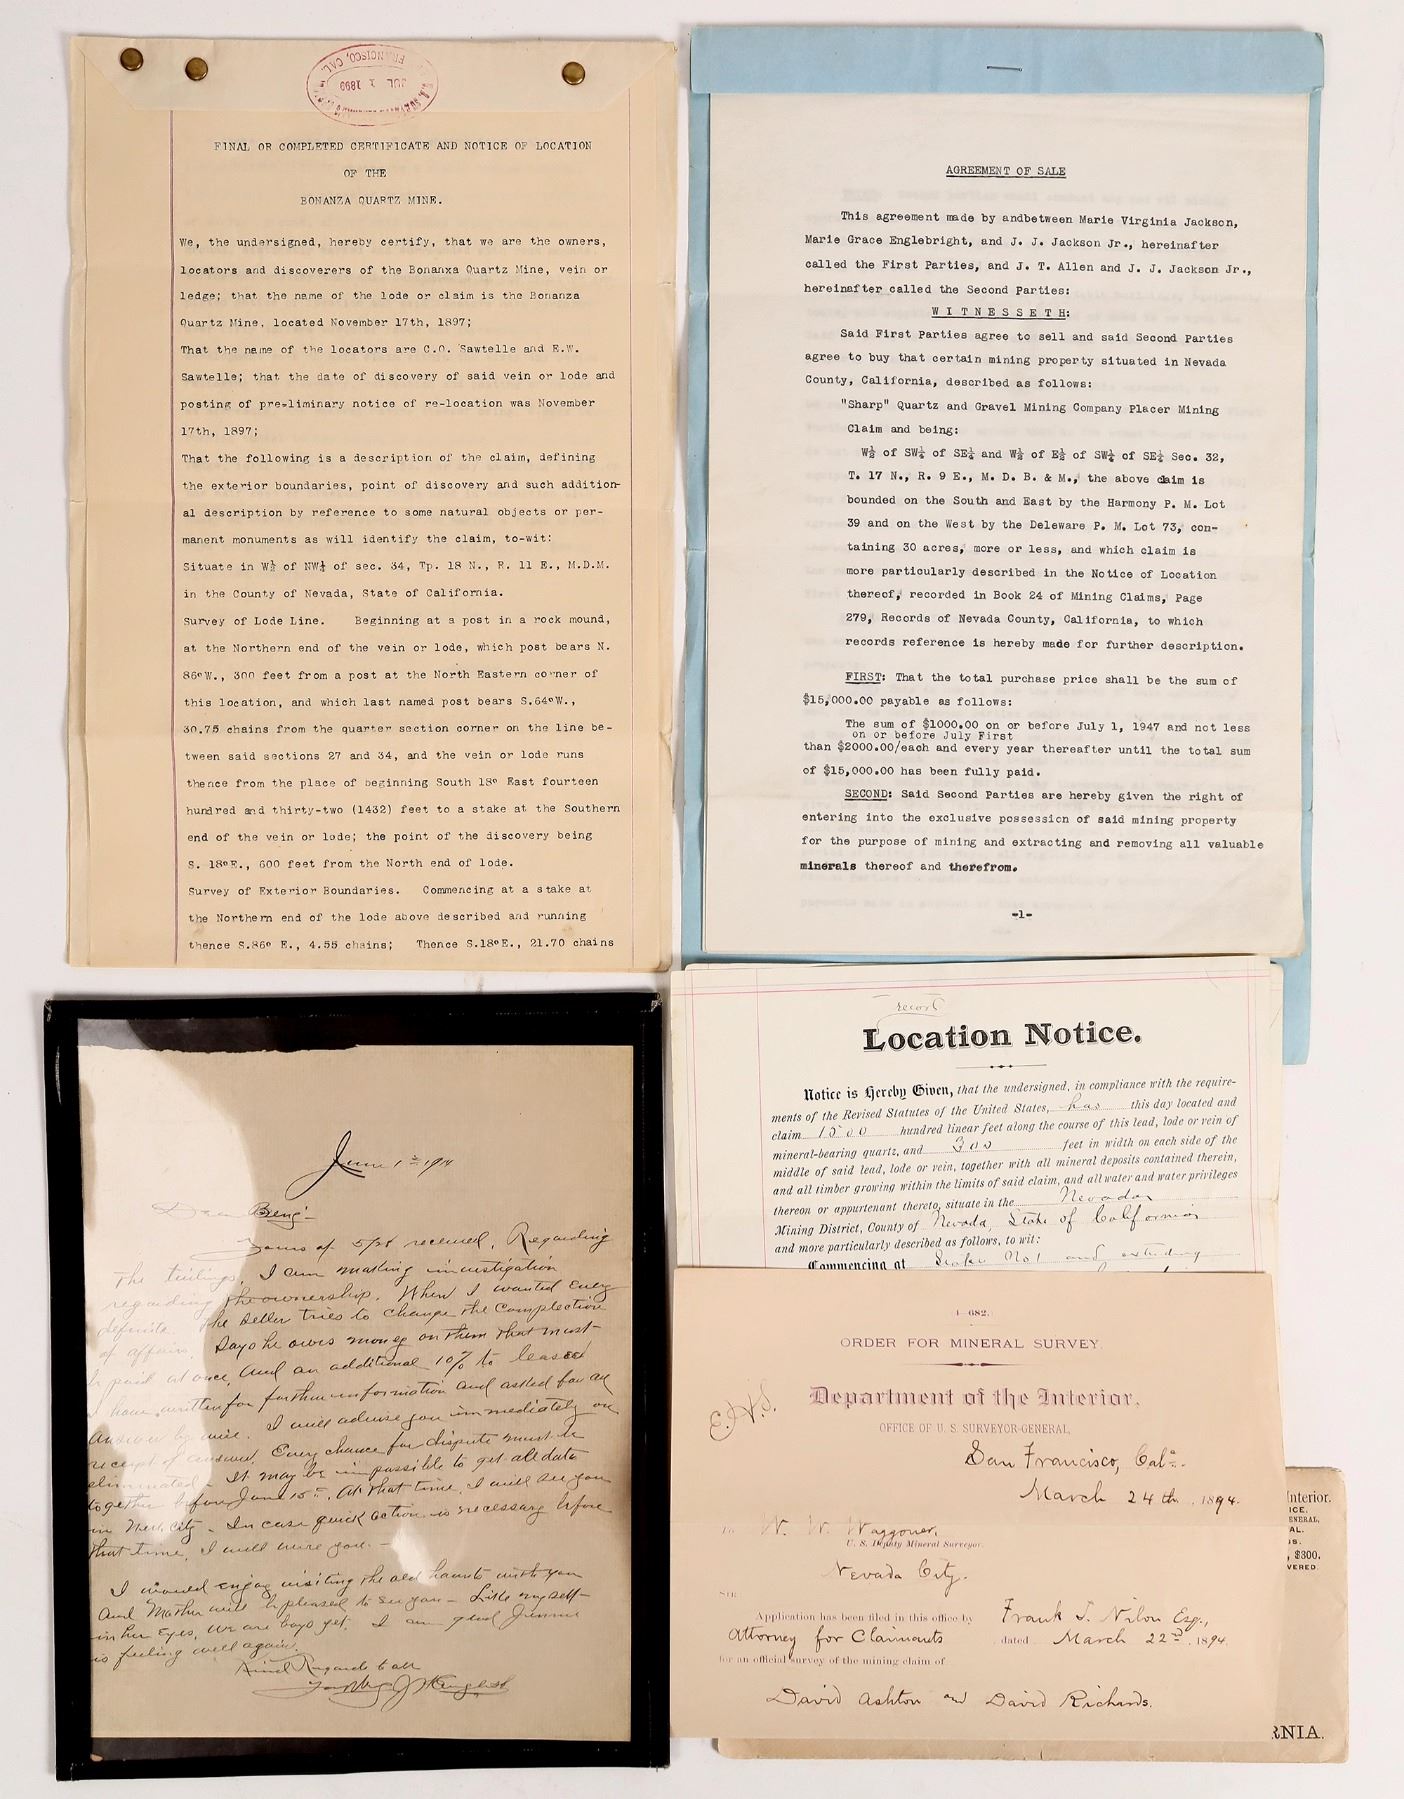 JUL 1 1899
FRANCISCO, CAL.
FINAL OR COMPLETED CERTIFICATE AND NOTICE OF LOCATION
OF THE
BONANZA QUARTZ MINE.
We, the undersigned, hereby certify, that we are the owners,
locators and discoverers of the Bonanxa Quartz Mine, vein or
ledge; that the name of the lode or claim is the Bonanza
Quartz Mine, located November 17th, 1897;
That the name of the locators are C.O. Sawtelle and E.W.
Sawtelle; that the date of discovery of said vein or lode and
posting of pre-liminary notice of re-location was November
17th, 1897;
That the following is a description of the claim, defining
the exterior boundaries, point of discovery and such addition-
al description by reference to some natural objects or per-
manent monuments as will identify the claim, to-wit:
Situate in W½ of NW¼ of sec. 34, Tp. 18 N., R. 11 E., M.D.M.
in the County of Nevada, State of California.
Survey of Lode Line. Beginning at a post in a rock mound,
at the Northern end of the vein or lode, which post bears N.
86°W., 300 feet from a post at the North Eastern corner of
this location, and which last named post bears S.64°W.,
30.75 chains from the quarter section corner on the line be-
tween said sections 27 and 34, and the vein or lode runs
thence from the place of beginning South 18° East fourteen
hundred and thirty-two (1432) feet to a stake at the Southern
end of the vein or lode; the point of the discovery being
S. 18°E., 600 feet from the North end of lode.
Survey of Exterior Boundaries. Commencing at a stake at
the Northern end of the lode above described and running
thence S.86° E., 4.55 chains; Thence S.18°E., 21.70 chains
AGREEMENT OF SALE
This agreement made by andbetween Marie Virginia Jackson,
Marie Grace Englebright, and J. J. Jackson Jr., hereinafter
called the First Parties, and J. T. Allen and J. J. Jackson Jr.,
hereinafter called the Second Parties:
W I T N E S S E T H:
Said First Parties agree to sell and said Second Parties
agree to buy that certain mining property situated in Nevada
County, California, described as follows:
"Sharp" Quartz and Gravel Mining Company Placer Mining
Claim and being:
W½ of SW¼ of SE¼ and W½ of E½ of SW¼ of SE¼ Sec. 32,
T. 17 N., R. 9 E., M. D. B. & M., the above claim is
bounded on the South and East by the Harmony P. M. Lot
39 and on the West by the Deleware P. M. Lot 73, con-
taining 30 acres, more or less, and which claim is
more particularly described in the Notice of Location
thereof, recorded in Book 24 of Mining Claims, Page
279, Records of Nevada County, California, to which
records reference is hereby made for further description.
FIRST: That the total purchase price shall be the sum of
$15,000.00 payable as follows:
The sum of $1000.00 on or before July 1, 1947 and not less
on or before July First
than $2000.00/each and every year thereafter until the total sum
of $15,000.00 has been fully paid.
SECOND: Said Second Parties are hereby given the right of
entering into the exclusive possession of said mining property
for the purpose of mining and extracting and removing all valuable
minerals thereof and therefrom.
-1-
June 1st 1914
Dear Beng'-
Yours of 5/28 received. Regarding
the tailings, I am making investigation
regarding the ownership. When I wanted every
definite the seller tries to change the complection
of affairs. Says he owes money on them that must
be paid at once, and an additional 10% to
I have written for further information and asked for an
answer by wire. I will advise you immediately on
receipt of answer. Every chance for dispute must be
eliminated. It may be impossible to get all data
together before June 15th. At that time, I will see you
in New City. In case quick action is necessary before
that time, I will wire you.
I would enjoy visiting the old haunts with you
and Mother will be pleased to see you - Like myself
in her eyes, we are boys yet. I am glad Jimmie
is feeling well again.
Kind Regards to all
record
Location Notice.
Notice is Hereby Given, that the undersigned, in compliance with the require-
ments of the Revised Statutes of the United States, has this day located and
claim 1500 hundred linear feet along the course of this lead, lode or vein of
mineral-bearing quartz, and 300 feet in width on each side of the
middle of said lead, lode or vein, together with all mineral deposits contained therein,
and all timber growing within the limits of said claim, and all water and water privileges
thereon or appurtenant thereto, situate in the Nevada
Mining District, County of Nevada, State of California
and more particularly described as follows, to wit:
Commencing at Stake No 1 and extending
4-682.
ORDER FOR MINERAL SURVEY.
E.H.S.
Department of the Interior,
OFFICE OF U. S. SURVEYOR-GENERAL,
San Francisco, Cala.
March 24th, 1894.
To W. W. Waggoner,
U. S. Deputy Mineral Surveyor
Nevada City.
SIR:
Application has been filed in this office by Frank T. Nilon Esq.,
Attorney for Claimants dated March 22nd, 1894,
for an official survey of the mining claim of
David Ashton and David Richards.
Interior.
ICE.
ENERAL,
AL.
, $300.
VERED.
RNIA.